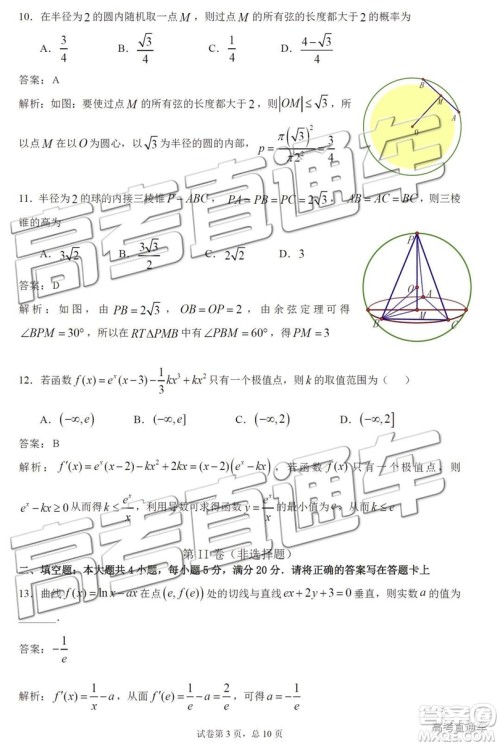 10. 在半径为2的圆内随机取一点M，则过点M的所有弦的长度都大于2的概率为
A. 3/4 B. √3/4 C. 1/4 D. (4−√3)/4
答案：A
解析：如图：要使过点M的所有弦的长度都大于2，则|OM|≤√3，所
以点M在以O为圆心，以√3为半径的圆的内部，p=π(√3)²/π2²=3/4
B
M
A
O
11. 半径为2的球的内接三棱锥P−ABC，PA=PB=PC=2√3，AB=AC=BC，则三棱
锥的高为
A. 3√2 B. 3√3/2 C. 2√2 D. 3
答案：D
解析：如图，由PB=2√3，OB=OP=2，由余弦定理可得
∠BPM=30°，所以在RTΔPMB中有∠PBM=60°，得PM=3
P
O
A
M
B
C
12. 若函数f(x)=eˣ(x−3)−1/3kx³+kx²只有一个极值点，则k的取值范围为（ ）
A. (−∞,e) B. (−∞,e] C. (−∞,2) D. (−∞,2]
答案：B
解析：f′(x)=eˣ(x−2)−kx²+2kx=(x−2)(eˣ−kx)，若函数f(x)只有一个极值点，则
eˣ−kx≥0从而得k≤eˣ/x，利用导数可求得函数y=eˣ/x的最小值为e，从而k≤e
第II卷（非选择题）
二、填空题：本大题共4小题，每小题5分，满分20分．请将正确的答案写在答题卡上
13. 曲线f(x)=ln x−ax在点(e,f(e))处的切线与直线ex+2y+3=0垂直，则实数a的值为
______.
答案：−1/e
解析：f′(x)=1/x−a，从面f′(e)=1/e−a=2/e，可得a=−1/e
试卷第3页，总10页
高考直通车
高考直通车
高考直通车